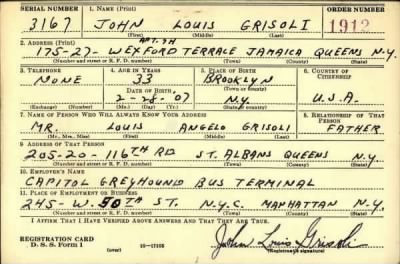 SERIAL NUMBER 1. NAME (Print) ORDER NUMBER
3167 JOHN LOUIS GRISOLI 1912
(First) (Middle) (Last)
2. ADDRESS (Print) APT. 7H
175-27- WEXFORD TERRACE JAMAICA QUEENS N.Y.
(Number and street or R. F. D. number) (Town) (County) (State)
3. TELEPHONE 4. AGE IN YEARS 5. PLACE OF BIRTH 6. COUNTRY OF CITIZENSHIP
NONE 33 BROOKLYN
DATE OF BIRTH (Town or county)
2-28-07 N.Y. U.S.A.
(Exchange) (Number) (Mo.) (Day) (Yr.) (State or country)
7. NAME OF PERSON WHO WILL ALWAYS KNOW YOUR ADDRESS 8. RELATIONSHIP OF THAT PERSON
MR. LOUIS ANGELO GRISOLI FATHER
(Mr., Mrs., Miss) (First) (Middle) (Last)
9. ADDRESS OF THAT PERSON
205-20-116TH RD ST. ALBANS QUEENS N.Y.
(Number and street or R. F. D. number) (Town) (County) (State)
10. EMPLOYER'S NAME
CAPITOL GREYHOUND BUS TERMINAL
11. PLACE OF EMPLOYMENT OR BUSINESS
245-W. 50TH ST. N.Y.C. MANHATTAN N.Y.
(Number and street or R. F. D. number) (Town) (County) (State)
I AFFIRM THAT I HAVE VERIFIED ABOVE ANSWERS AND THAT THEY ARE TRUE.
REGISTRATION CARD
D. S. S. Form 1 (over) 16-17105 John Louis Grisoli